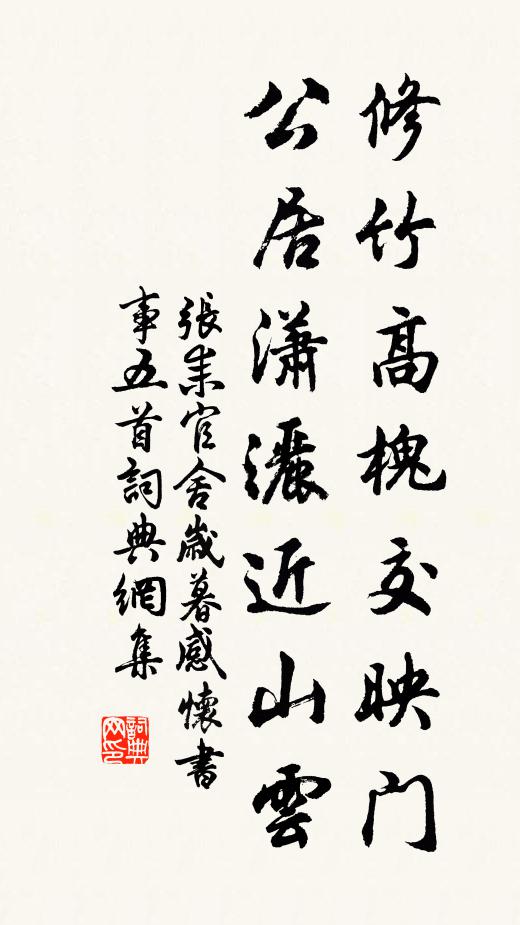 修竹高槐交映門
公居瀟灑近山雲
張耒官舍歲暮感懷書
事五首詞典網集
詞典
网印